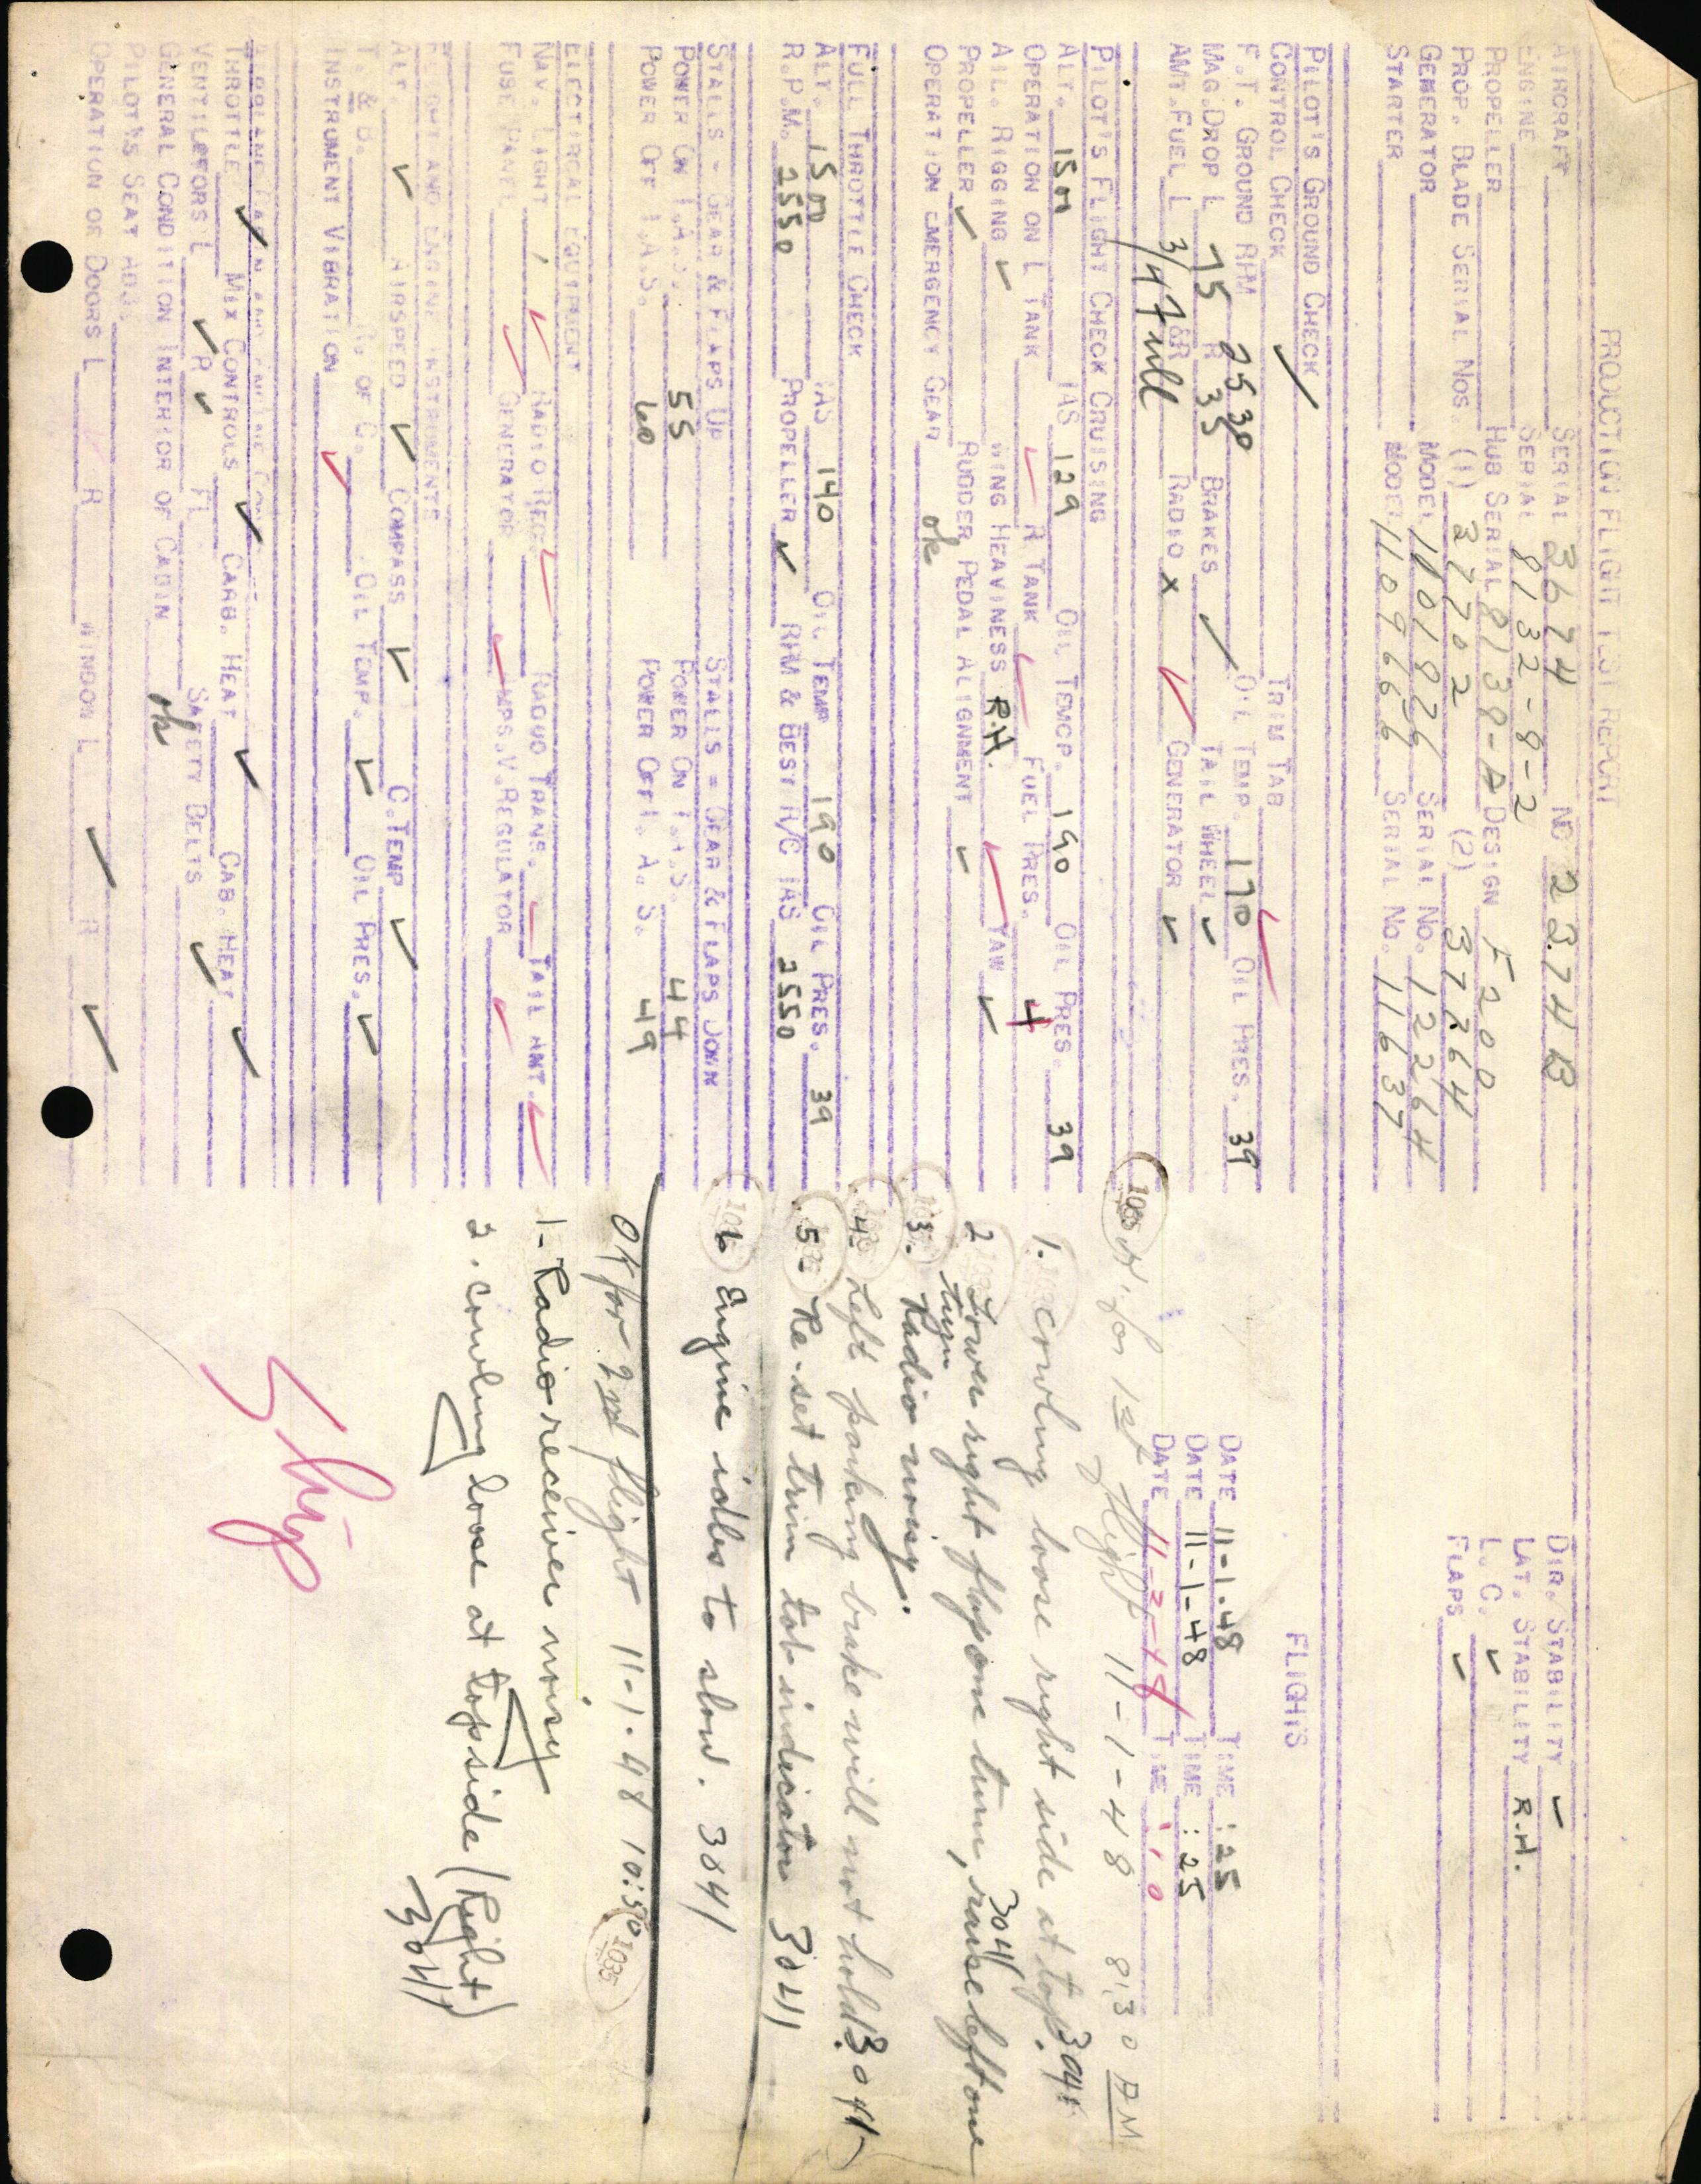 PRODUCTION FLIGHT TEST REPORT
AIRCRAFT SERIAL 3674 NC 2374 B
ENGINE SERIAL 8132-8-2
PROPELLER HUB SERIAL 8138-A DESIGN F200
PROP. BLADE SERIAL NOS. (1) 37702 (2) 37764
GENERATOR MODEL 1101876 SERIAL NO. 12264
STARTER MODEL 1109666 SERIAL NO. 11637
DIR. STABILITY ✓
LAT. STABILITY R.H.
L. C. ✓
FLAPS ✓
PILOT'S GROUND CHECK
CONTROL CHECK ✓ TRIM TAB ✓
F.T. GROUND RPM 2530 OIL TEMP. 170 OIL PRES. 39
MAG.DROP L 75 R 35 BRAKES ✓ TAIL WHEEL ✓
AMT.FUEL L 3/4 &R full RADIO X ✓ GENERATOR ✓
FLIGHTS
DATE 11-1-48 TIME :25
DATE 11-1-48 TIME :25
DATE 11-2-48 TIME :10
PILOT'S FLIGHT CHECK CRUISING
ALT. 1500 IAS 129 OIL TEMP. 190 OIL PRES. 39
OPERATION ON L TANK ✓ R TANK ✓ FUEL PRES. 4
AIL. RIGGING ✓ WING HEAVINESS R.H. YAW ✓
PROPELLER ✓ RUDDER PEDAL ALIGNMENT ✓
OPERATION EMERGENCY GEAR ok
FULL THROTTLE CHECK
ALT. 1500 IAS 140 OIL TEMP 190 OIL PRES. 39
R.P.M. 2550 PROPELLER ✓ RPM & BEST R/C IAS 2550
STALLS = GEAR & FLAPS UP STALLS = GEAR & FLAPS DOWN
POWER ON I.A.S. 55 POWER ON I.A.S. 44
POWER OFF I.A.S. 60 POWER OFF I. A. S. 49
ELECTIRCAL EQUIPMENT
NAV. LIGHT ✓ RADIO REC. ✓ RADIO TRANS. ✓ TAIL ANT. ✓
FUSE PANEL ✓ GENERATOR ✓ AMPS.V.REGULATOR ✓
FLIGHT AND ENGINE INSTRUMENTS
ALT. ✓ AIRSPEED ✓ COMPASS ✓ C.TEMP ✓
T. & B. R. OF C. OIL TEMP. ✓ OIL PRES. ✓
INSTRUMENT VIBRATION ✓
AIRPLANE CABIN AND ENGINE
THROTTLE ✓ MIX CONTROLS ✓ CARB. HEAT ✓ CAB. HEAT ✓
VENTILATORS L ✓ R ✓ SAFETY BELTS ✓
GENERAL CONDITION INTERIOR OF CABIN ok
PILOT'S SEAT ADJ.
OPERATION OF DOORS L R WINDOW L ✓ R ✓
1035 for 1st flight 11-1-48 8:30 AM
1. cowling loose right side at top. 3041
2 Lower right flap one turn, raise left one
turn 3041
3. Radio noisy.
4- Left parking brake will not hold. 3041
5- Re-set trim tab indicator 3041
6 Engine idles to slow. 3041
OK for 2nd flight 11-1-48 10:50 1035
1- Radio receiver noisy
2. cowling loose at top side (Right)
3041
Ship